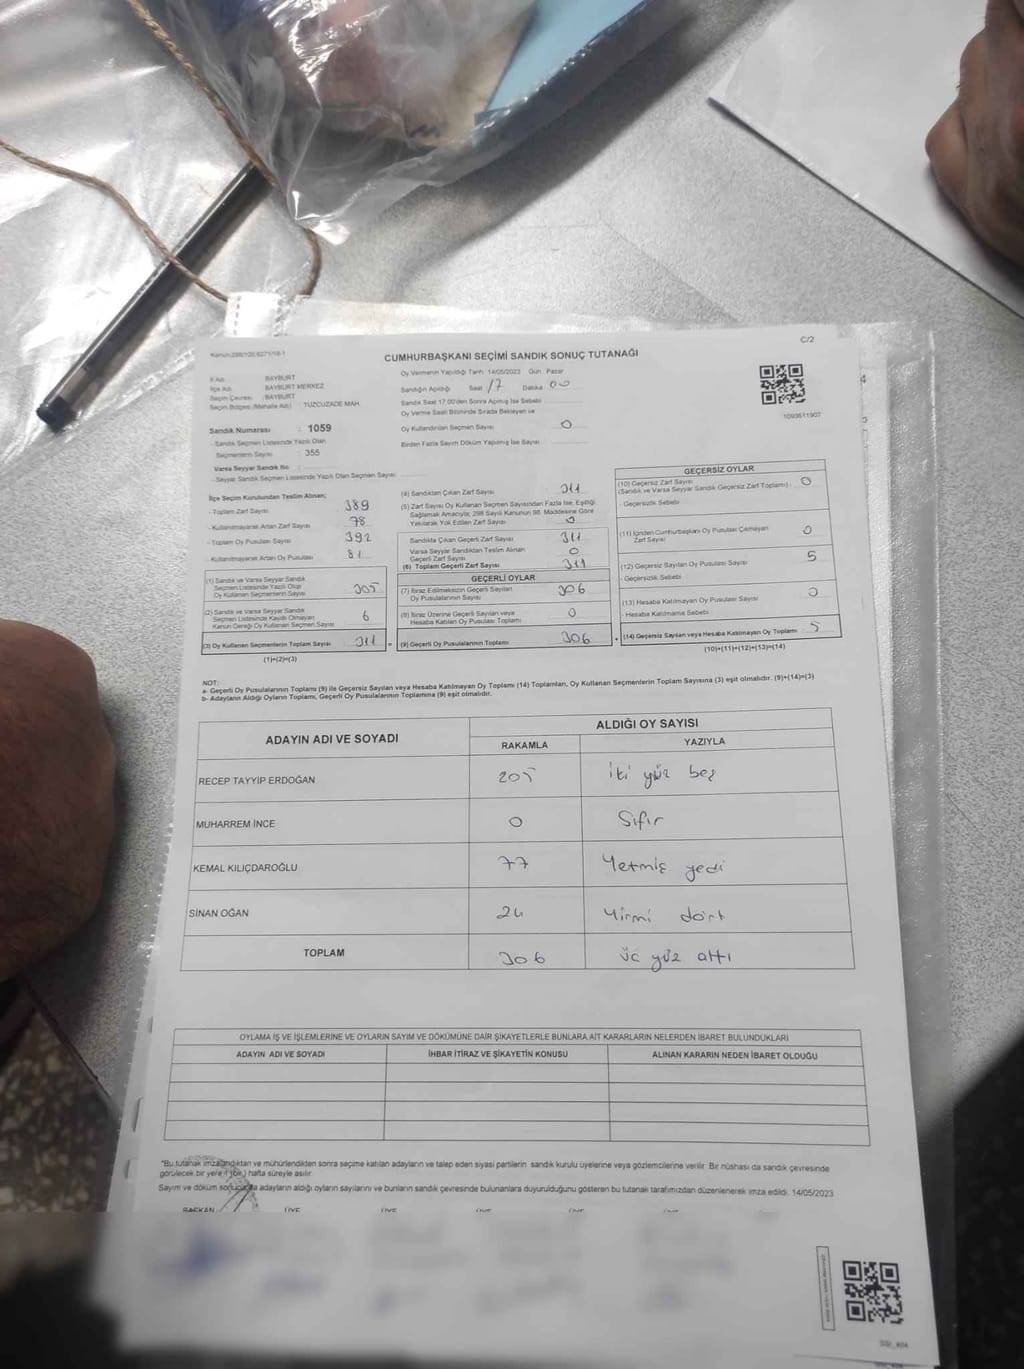 C/2
CUMHURBAŞKANI SEÇİMİ SANDIK SONUÇ TUTANAĞI
İl Adı : BAYBURT
İlçe Adı : BAYBURT MERKEZ
Seçim Çevresi : BAYBURT
Seçim Bölgesi (Mahalle Adı) : TUZCUZADE MAH.
Sandık Numarası : 1059
- Sandık Seçmen Listesinde Yazılı Olan
Seçmenlerin Sayısı : 355
Varsa Seyyar Sandık No :
- Seyyar Sandık Seçmen Listesinde Yazılı Olan Seçmen Sayısı
Oy Vermenin Yapıldığı Tarih: 14/05/2023 Gün : Pazar
Sandığın Açıldığı Saat 17 Dakika 00
Sandık Saat 17:00'den Sonra Açılmış İse Sebebi
Oy Verme Saati Bitiminde Sırada Bekleyen ve
Oy Kullandırılan Seçmen Sayısı 0
Birden Fazla Sayım Döküm Yapılmış İse Sayısı
1093611907
İlçe Seçim Kurulundan Teslim Alınan;
- Toplam Zarf Sayısı 389
- Kullanılmayarak Artan Zarf Sayısı 78
- Toplam Oy Pusulası Sayısı 392
- Kullanılmayarak Artan Oy Pusulası 81
(1) Sandık ve Varsa Seyyar Sandık
Seçmen Listesinde Yazılı Olup
Oy Kullanan Seçmenlerin Sayısı 305
(2) Sandık ve Varsa Seyyar Sandık
Seçmen Listesinde Kayıtlı Olmayan
Kanun Gereği Oy Kullanan Seçmen Sayısı 6
(3) Oy Kullanan Seçmenlerin Toplam Sayısı 311
(1)+(2)=(3)
(4) Sandıktan Çıkan Zarf Sayısı 311
(5) Zarf Sayısı Oy Kullanan Seçmen Sayısından Fazla İse; Eşitliği
Sağlamak Amacıyla; 298 Sayılı Kanunun 98. Maddesine Göre
Yakılarak Yok Edilen Zarf Sayısı 0
Sandıkta Çıkan Geçerli Zarf Sayısı 311
Varsa Seyyar Sandıktan Teslim Alınan
Geçerli Zarf Sayısı 0
(6) Toplam Geçerli Zarf Sayısı 311
GEÇERLİ OYLAR
(7) İtiraz Edilmeksizin Geçerli Sayılan
Oy Pusulalarının Sayısı 306
(8) İtiraz Üzerine Geçerli Sayılan veya
Hesaba Katılan Oy Pusulası Toplamı 0
(9) Geçerli Oy Pusulalarının Toplamı 306
GEÇERSİZ OYLAR
(10) Geçersiz Zarf Sayısı 0
(Sandık ve Varsa Seyyar Sandık Geçersiz Zarf Toplamı)
- Geçersizlik Sebebi
(11) İçinden Cumhurbaşkanı Oy Pusulası Çıkmayan
Zarf Sayısı 0
(12) Geçersiz Sayılan Oy Pusulası Sayısı 5
- Geçersizlik Sebebi
(13) Hesaba Katılmayan Oy Pusulası Sayısı 0
- Hesaba Katılmama Sebebi
(14) Geçersiz Sayılan veya Hesaba Katılmayan Oy Toplamı 5
(10)+(11)+(12)+(13)=(14)
NOT:
a- Geçerli Oy Pusulalarının Toplamı (9) ile Geçersiz Sayılan veya Hesaba Katılmayan Oy Toplamı (14) Toplamları, Oy Kullanan Seçmenlerin Toplam Sayısına (3) eşit olmalıdır. (9)+(14)=(3)
b- Adayların Aldığı Oyların Toplamı, Geçerli Oy Pusulalarının Toplamına (9) eşit olmalıdır.
ADAYIN ADI VE SOYADI
ALDIĞI OY SAYISI
RAKAMLA YAZIYLA
RECEP TAYYİP ERDOĞAN 205 iki yüz beş
MUHARREM İNCE 0 Sıfır
KEMAL KILIÇDAROĞLU 77 Yetmiş yedi
SİNAN OĞAN 24 Yirmi dört
TOPLAM 306 üc yüz altı
OYLAMA İŞ VE İŞLEMLERİNE VE OYLARIN SAYIM VE DÖKÜMÜNE DAİR ŞİKAYETLERLE BUNLARA AİT KARARLARIN NELERDEN İBARET BULUNDUKLARI
ADAYIN ADI VE SOYADI İHBAR İTİRAZ VE ŞİKAYETİN KONUSU ALINAN KARARIN NEDEN İBARET OLDUĞU
*Bu tutanak imzalandıktan ve mühürlendikten sonra seçime katılan adayların ve talep eden siyasi partilerin sandık kurulu üyelerine veya gözlemcilerine verilir. Bir nüshası da sandık çevresinde
görülecek bir yere 1 (bir) hafta süreyle asılır.
Sayım ve döküm sonucunda adayların aldığı oyların sayılarını ve bunların sandık çevresinde bulunanlara duyurulduğunu gösteren bu tutanak tarafımızdan düzenlenerek imza edildi. 14/05/2023
BAŞKAN ÜYE ÜYE ÜYE ÜYE ÜYE